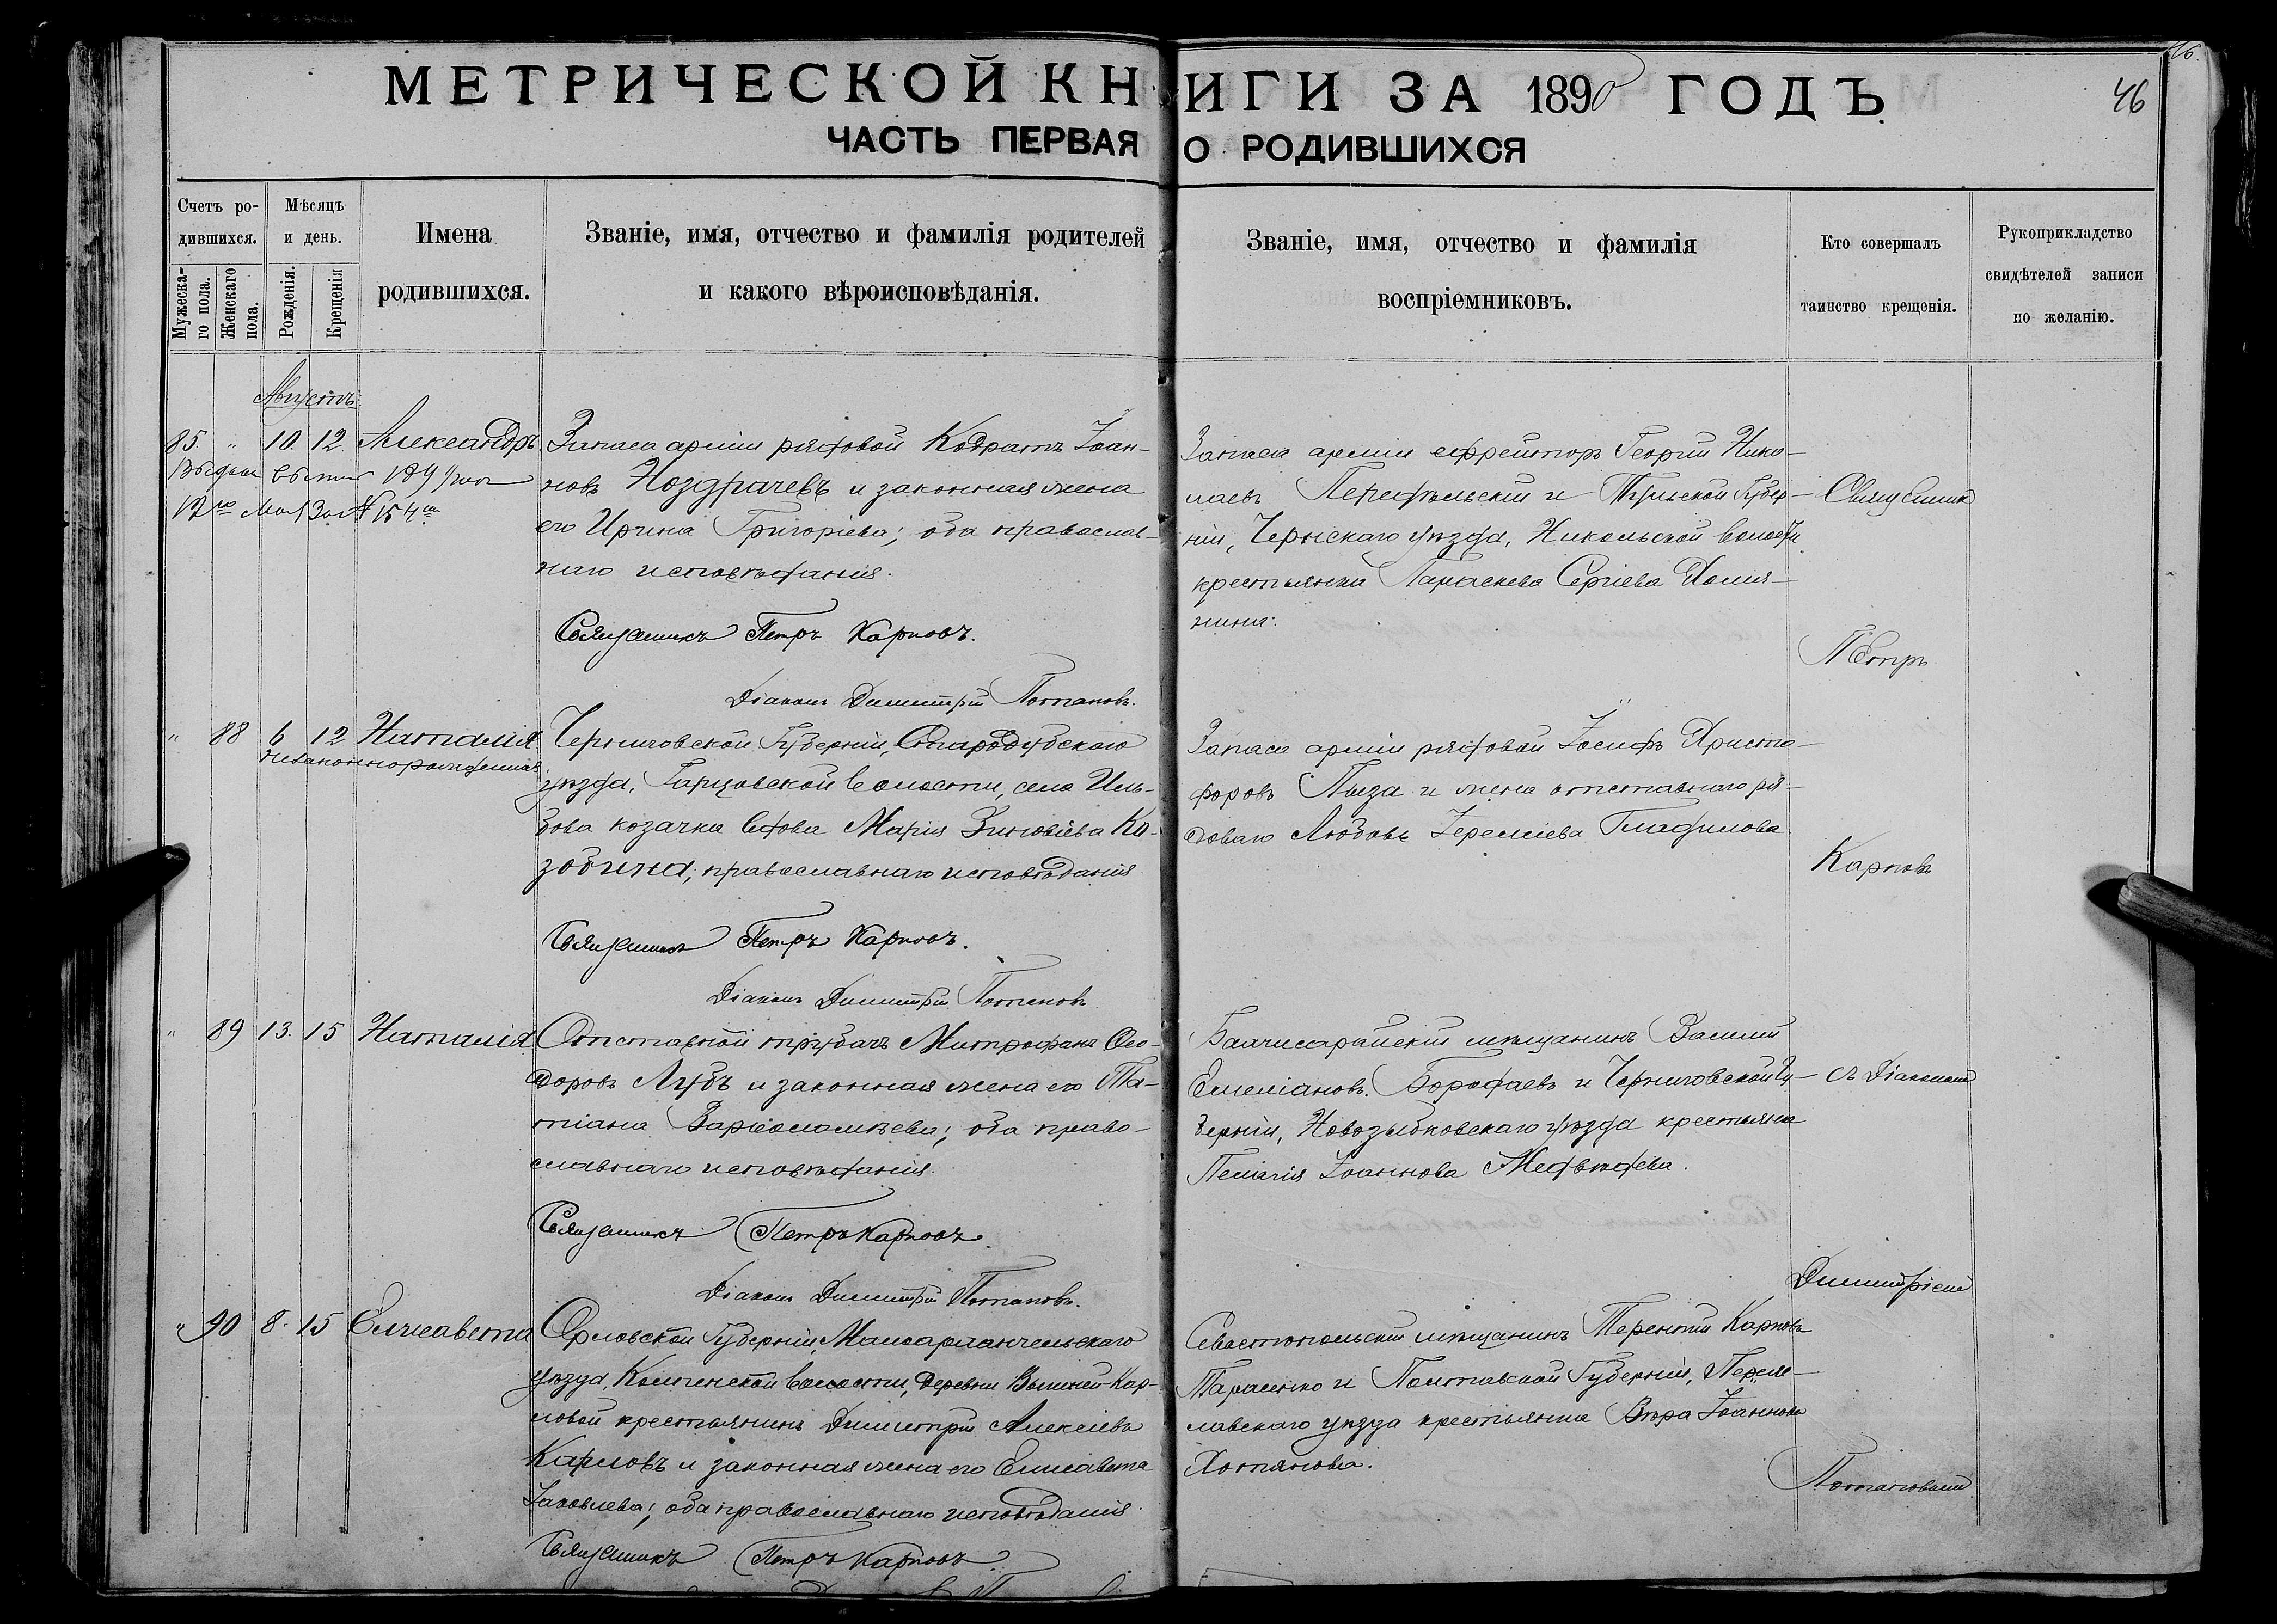 МЕТРИЧЕСКОЙ КНИГИ ЗА 1890 ГОДЪ
46
ЧАСТЬ ПЕРВАЯ О РОДИВШИХСЯ
Счетъ ро-
дившихся.
Мужеска-
го пола.
Женскаго
пола.
Мѣсяцъ
и день.
Рожденія.
Крещенія
Имена
родившихся.
Званіе, имя, отчество и фамилія родителей
и какого вѣроисповѣданія.
Званіе, имя, отчество и фамилія
воспріемниковъ.
Кто совершалъ
таинство крещенія.
Рукоприкладство
свидѣтелей записи
по желанію.
Августъ.
85. " 10. 12. Александръ.
Запаса арміи рядовой Кодратъ Іоан-
новъ Ноздрачевъ и законная жена
его Ирина Григоріева; оба православ-
наго исповѣданія.
Священникъ Петръ Карповъ.
Діаконъ Димитрій Потаповъ.
Запаса арміи ефрейторъ Георгій Нико-
лаевъ и Тульской Губер-
ніи, Чернскаго уѣзда, Никольской волости
крестьянка Параскева Сергіева
Священникъ
Петръ
Карповъ
" 88 6 12 Наталія
незаконнорожденная
Черниговской Губерніи, Стародубскаго
уѣзда, волости, села
козачка вдова Марія Зиновіева Ко-
зобина; православнаго исповѣданія
Священникъ Петръ Карповъ.
Діаконъ Димитрій Потаповъ
Запаса арміи рядовой Іосифъ Христо-
форовъ и жена отставнаго ря-
доваго Любовь Іереміева
" 89 13. 15 Наталія
Отставной трубачъ Митрофанъ Ѳео-
доровъ Лубъ и законная жена его Та-
тіана Варѳоломѣева; оба право-
славнаго исповѣданія.
Священникъ Петръ Карповъ.
Діаконъ Димитрій Потаповъ.
Бахчисарайскій мѣщанинъ Василій
Емеліановъ и Черниговской Гу-
берніи, Новозыбковскаго уѣзда крестьянка
Пелагія Іоаннова Медвѣдева.
съ Діакономъ
Димитріемъ
Потаповымъ
" 90 8. 15 Елисавета
Орловской Губерніи, Малоархангельскаго
уѣзда, волости, деревни
крестьянинъ Димитрій Алексіевъ
Карловъ и законная жена его Елисавета
Іаковлева; оба православнаго исповѣданія.
Священникъ Петръ Карповъ
Севастопольскій мѣщанинъ Терентій Карповъ
Тарасенко и Полтавской Губерніи, Перея-
славскаго уѣзда крестьянка Вѣра Іоаннова
Хотянова.